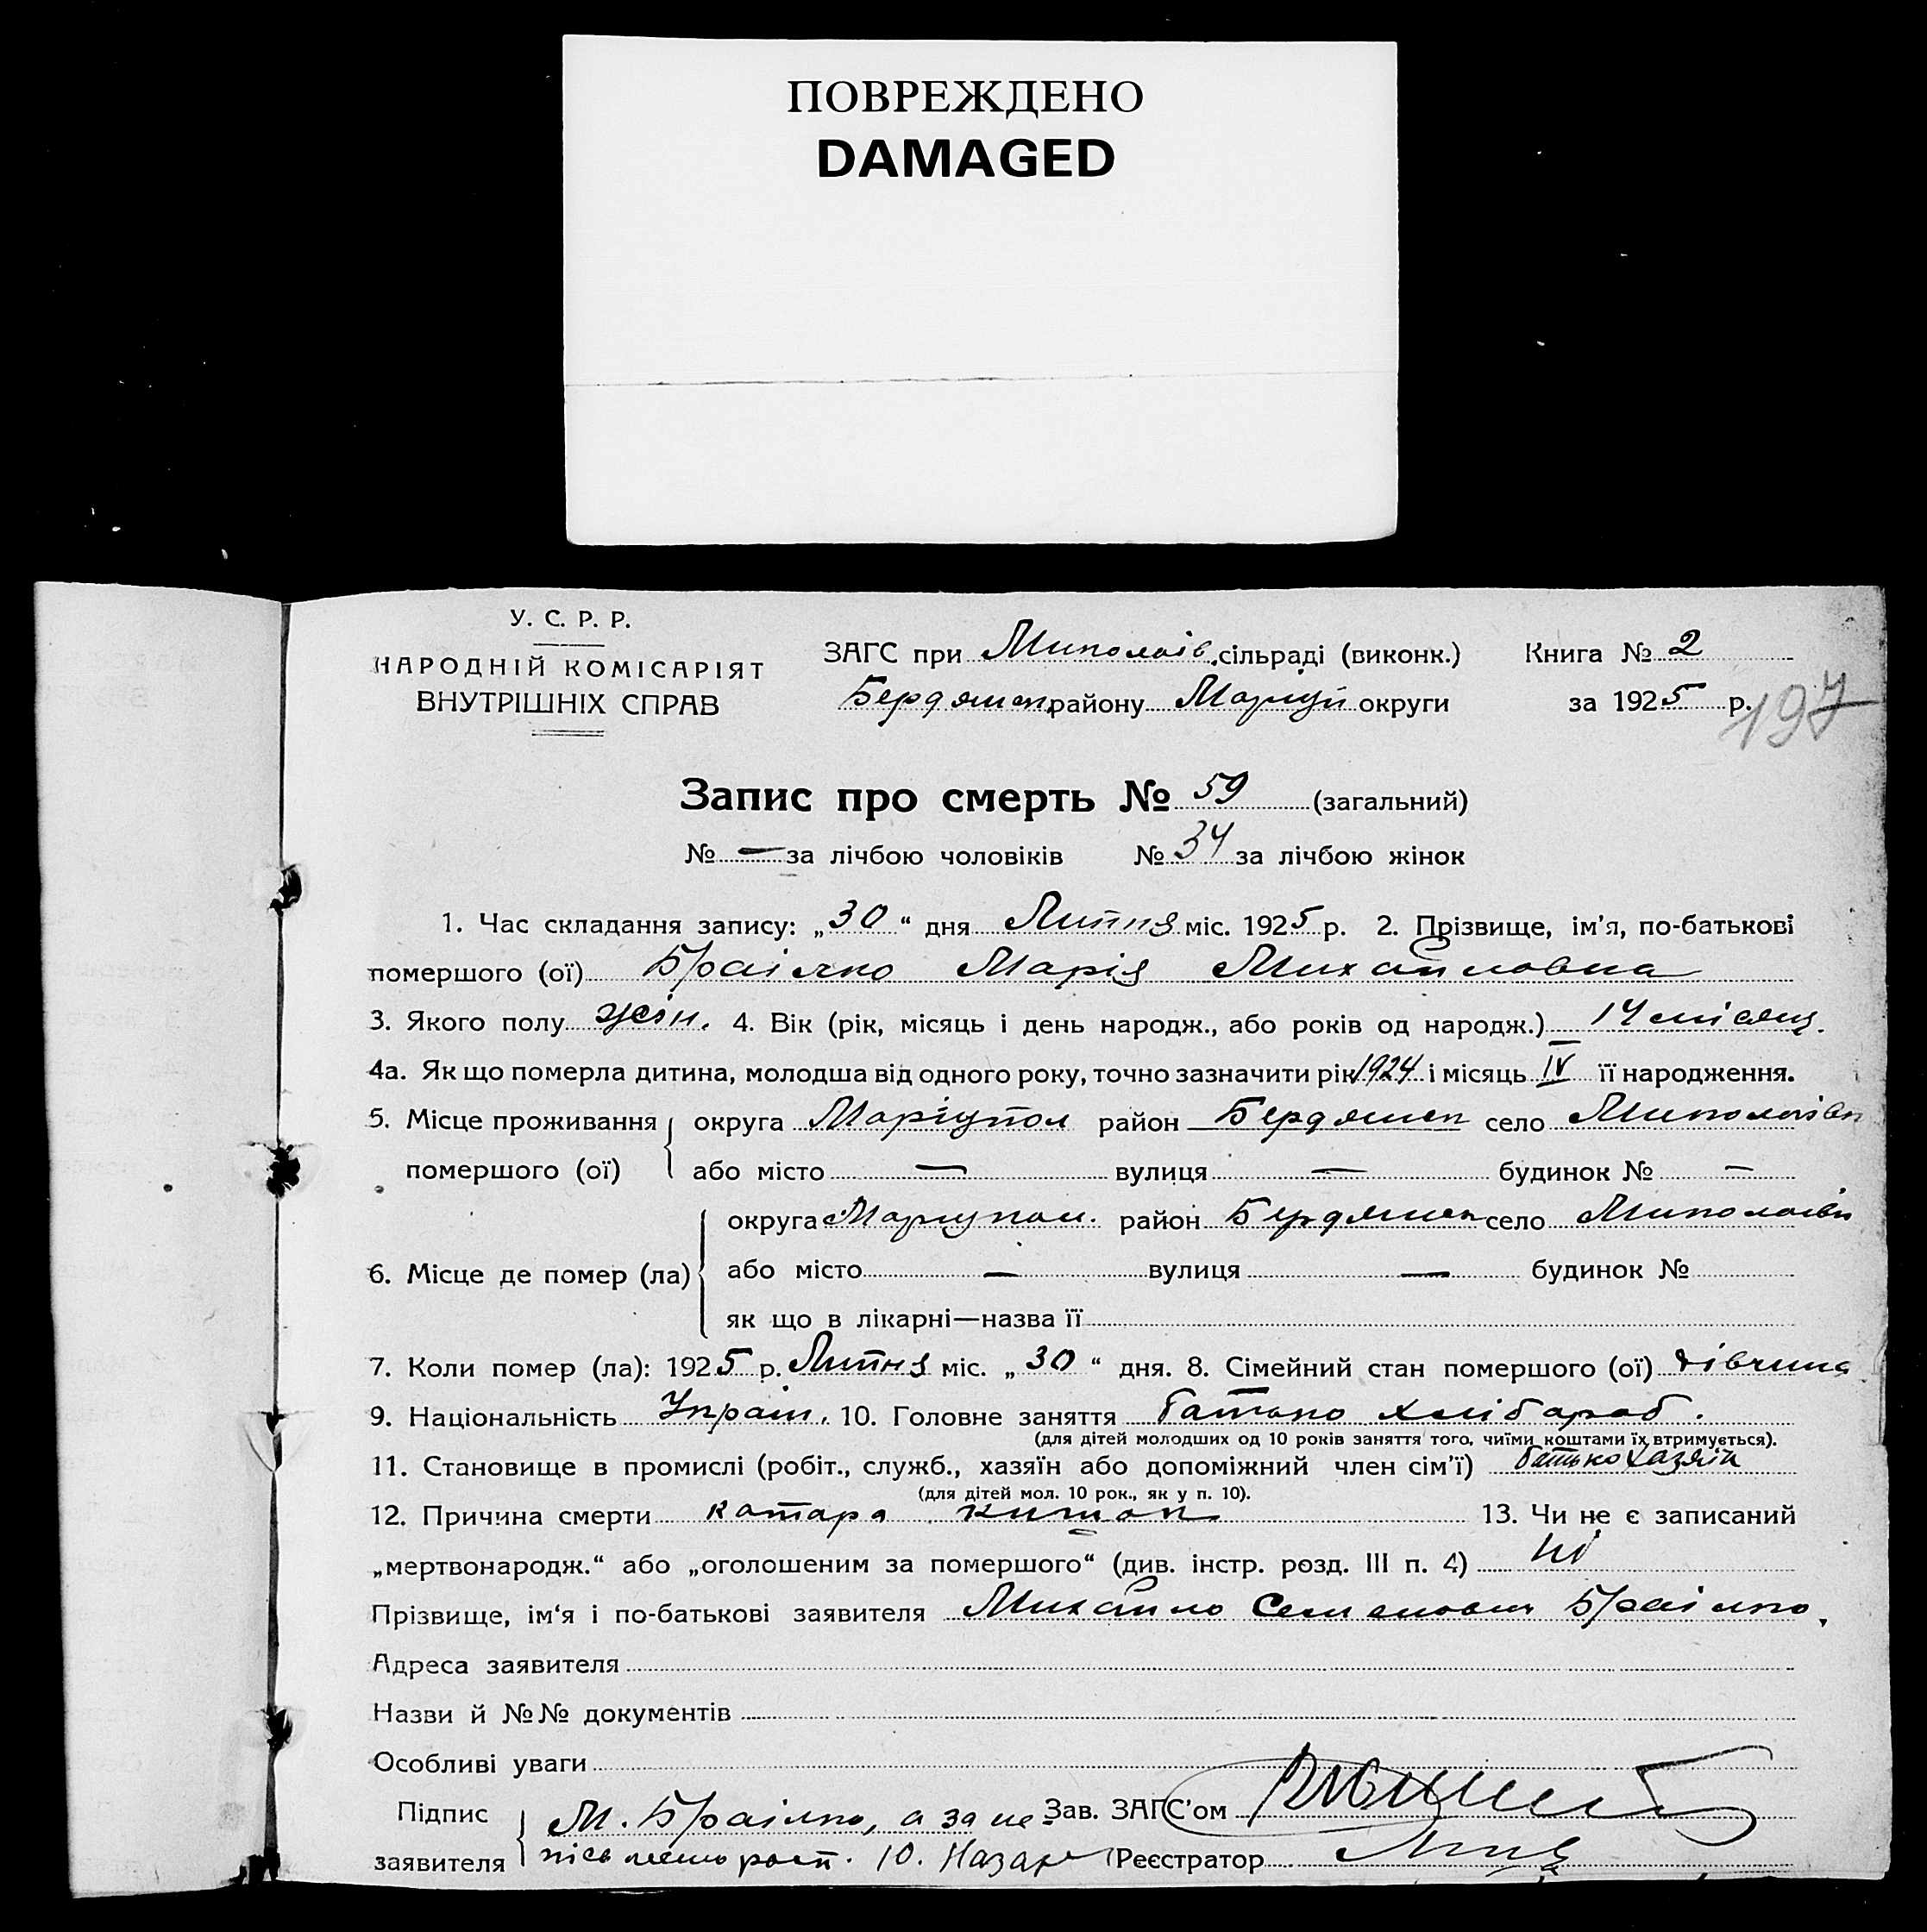 ПОВРЕЖДЕНО
DAMAGED
У. С. Р. Р.
НАРОДНІЙ КОМІСАРІЯТ
ВНУТРІШНІХ СПРАВ
ЗАГС при Миколаїв. сільраді (виконк.)
Бердянськ району Маріуп округи
Книга № 2
за 1925 р.
197
Запис про смерть № 59 (загальний)
№ — за лічбою чоловіків № 34 за лічбою жінок
1. Час складання запису: „30“ дня Липня міс. 1925 р. 2. Прізвище, ім'я, по-батькові
помершого (ої) Браілко Марія Михайловна
3. Якого полу жін. 4. Вік (рік, місяць і день народж., або років од народж.) 14 місяц.
4а. Як що померла дитина, молодша від одного року, точно зазначити рік 1924 і місяць IV її народження.
5. Місце проживання округа Маріупол район Бердянськ село Миколаївк
помершого (ої) або місто — вулиця — будинок № —
округа Маріупол. район Бердянськ село Миколаївк
6. Місце де помер (ла) або місто — вулиця — будинок №
як що в лікарні—назва її
7. Коли помер (ла): 1925 р. Липня міс. „30“ дня. 8. Сімейний стан помершого (ої) дівчина
9. Національність Украін. 10. Головне заняття батько хлібороб.
(для дітей молодших од 10 років заняття того, чиїми коштами їх втримується).
11. Становище в промислі (робіт., служб., хазяїн або допоміжний член сім'ї) батько хазяїн
(для дітей мол. 10 рок., як у п. 10).
12. Причина смерти катара кишок 13. Чи не є записаний
„мертвонародж.“ або „оголошеним за помершого“ (див. інстр. розд. III п. 4) ні
Прізвище, ім'я і по-батькові заявителя Михайло Семенович Браілко.
Адреса заявителя
Назви й №№ документів
Особливі уваги
Підпис М. Браілко, а за не- Зав. ЗАГС'ом
заявителя письменно расп. Ю. Назар Реєстратор